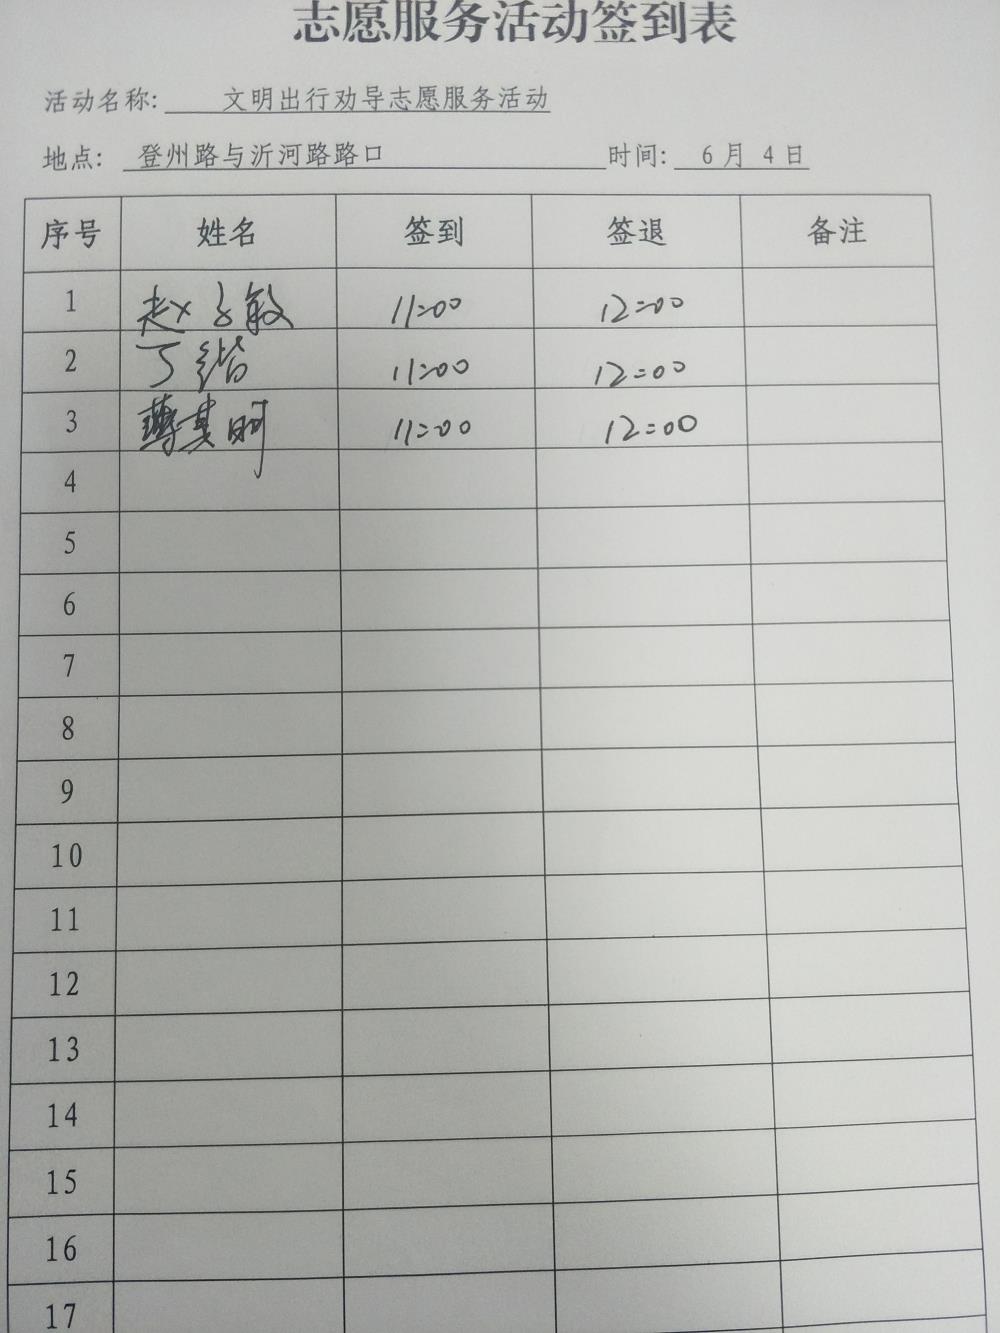 志愿服务活动签到表
活动名称: 文明出行劝导志愿服务活动
地点: 登州路与沂河路路口 时间: 6 月 4 日
序号 姓名 签到 签退 备注
1 赵 敏 11:00 12:00
2 丁锴 11:00 12:00
3 其明 11:00 12:00
4
5
6
7
8
9
10
11
12
13
14
15
16
17